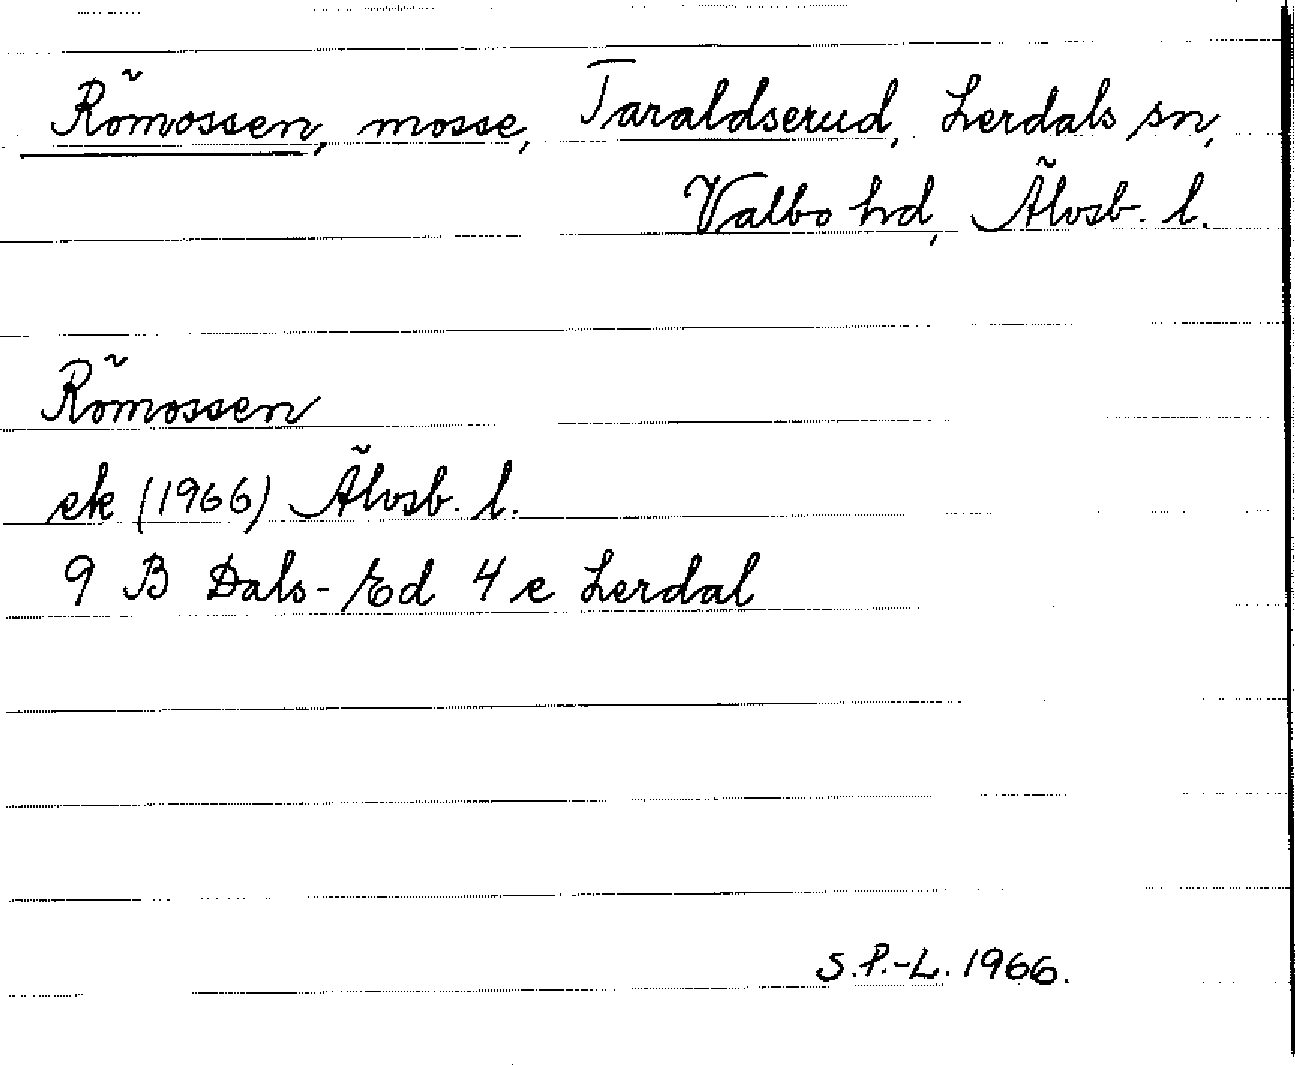 Römossen, mosse, Taraldserud, Lerdals sn,
Valbo hd, Älvsb. l.
Römossen
ek (1966) Älvsb. l.
9 B Dals-Ed 4 e Lerdal
S.P.-L. 1966.